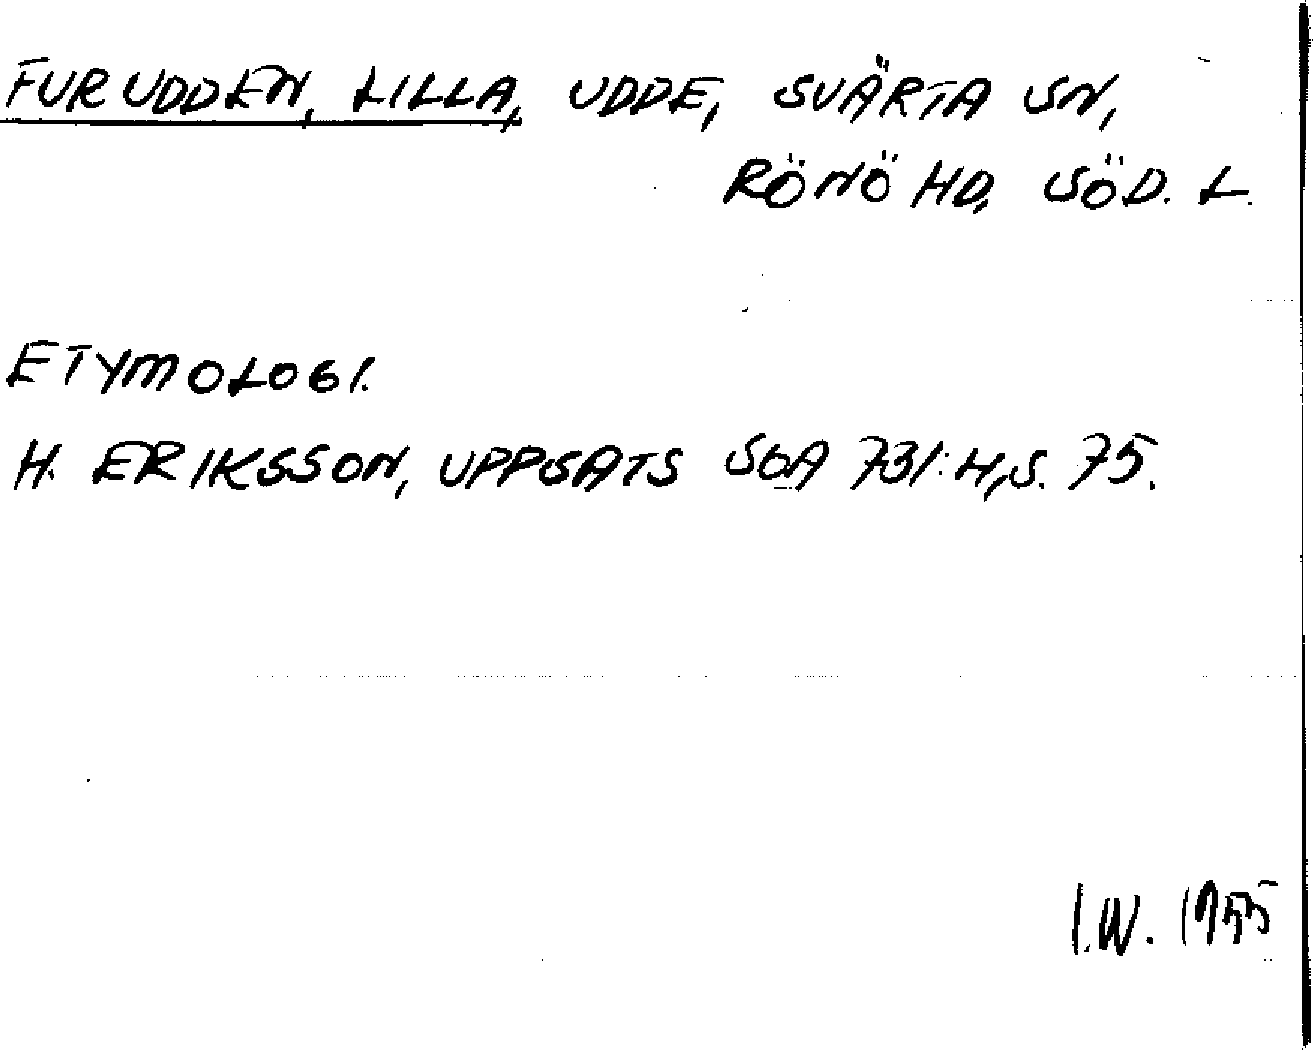 FURUDDEN, LILLA, UDDE, SVÄRTA SN,
RÖNÖ HD, SÖD. L.
ETYMOLOGI.
H. ERIKSSON, UPPSATS SOA 731:H,S. 75.
I.W. 1955